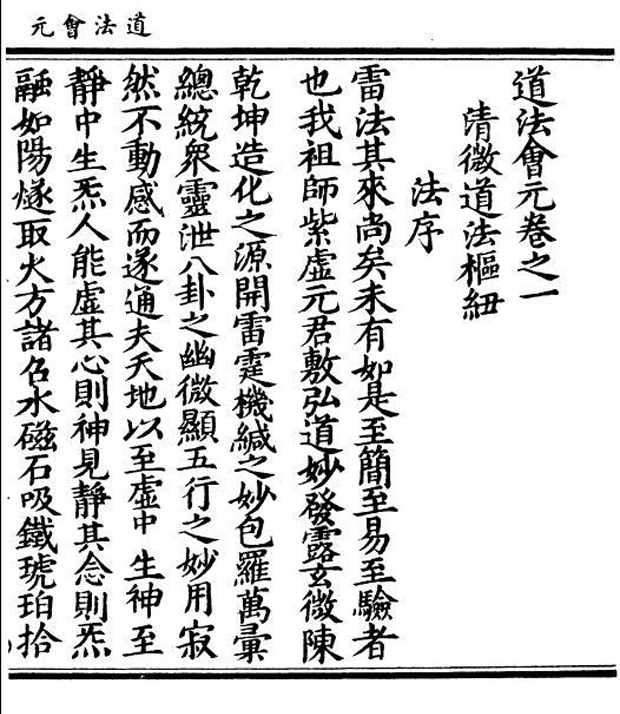 道法會元
道法會元卷之一
清微道法樞紐
法序
雷法其來尚矣未有如是至簡至易至驗者
也我祖師紫虛元君敷弘道妙發露玄微陳
乾坤造化之源開雷霆機緘之妙包羅萬彙
總統衆靈泄八卦之幽微顯五行之妙用寂
然不動感而遂通夫天地以至虛中生神至
靜中生炁人能虛其心則神見靜其念則炁
融如陽燧取火方諸召水磁石吸鐵琥珀拾